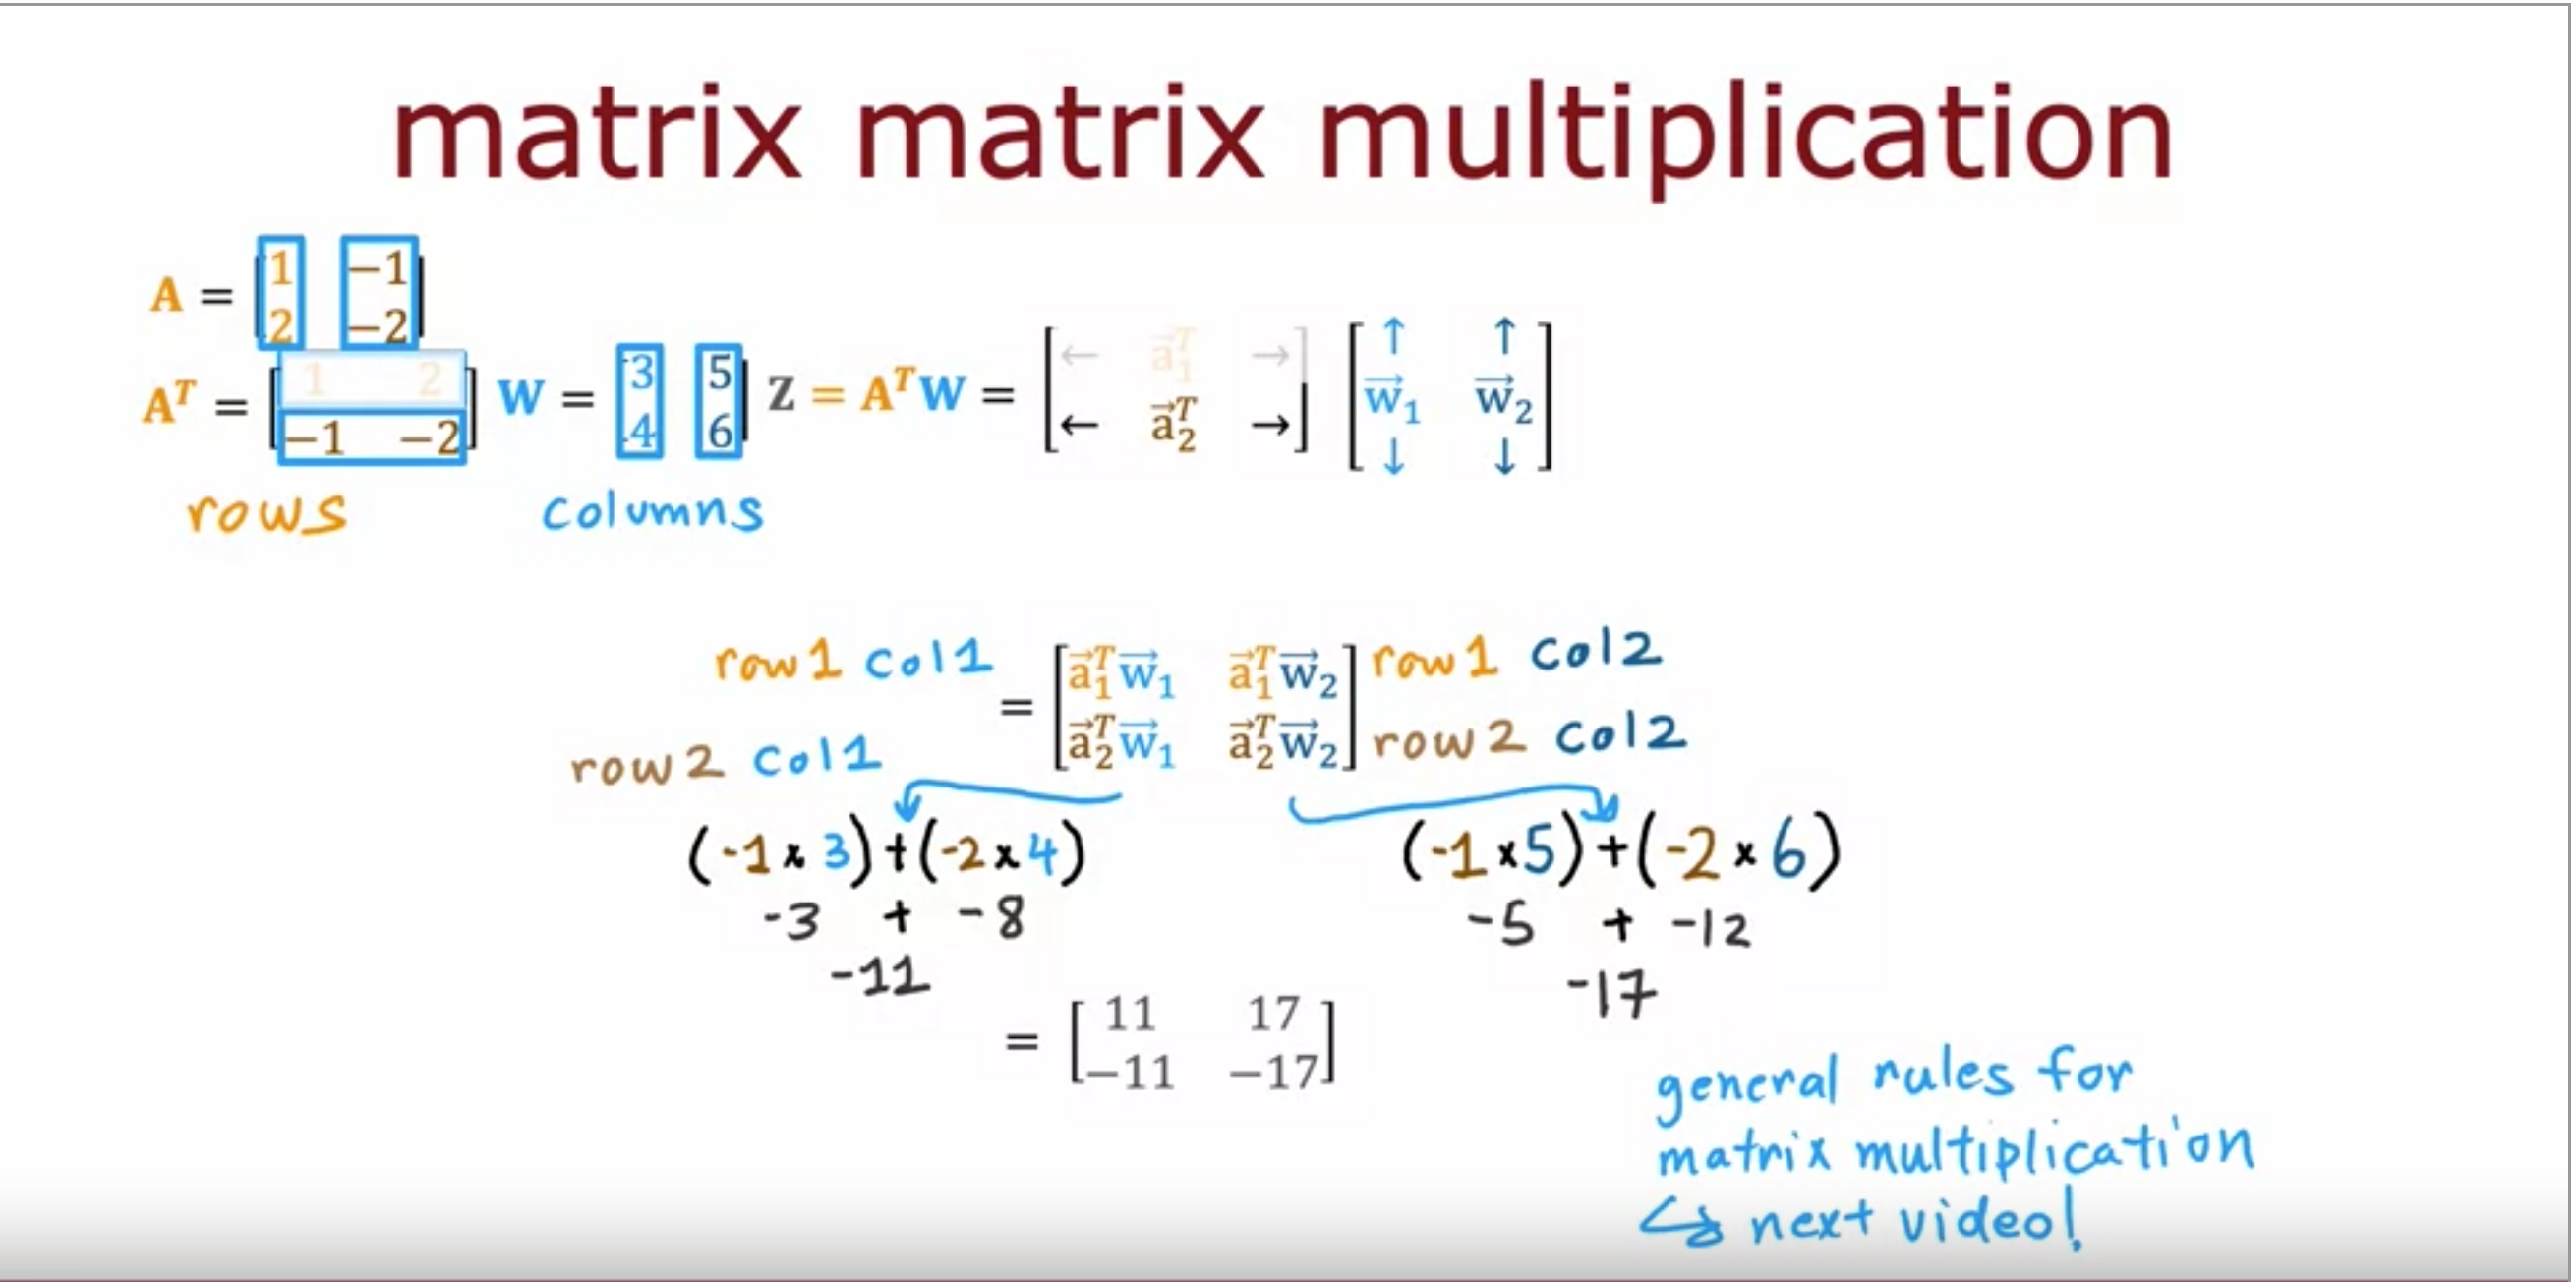 matrix matrix multiplication
A = [1 −1
2 −2]
Aᵀ = [1 2
−1 −2]
W = [3 5
4 6]
Z = AᵀW = [← a⃗₁ᵀ →
← a⃗₂ᵀ →] [↑ ↑
w⃗₁ w⃗₂
↓ ↓]
rows
columns
row1 col1
= [a⃗₁ᵀw⃗₁ a⃗₁ᵀw⃗₂
a⃗₂ᵀw⃗₁ a⃗₂ᵀw⃗₂]
row1 col2
row2 col1
row2 col2
(-1 × 3) + (-2 × 4)
-3 + -8
-11
(-1 × 5) + (-2 × 6)
-5 + -12
-17
= [11 17
−11 −17]
general rules for
matrix multiplication
↪ next video!